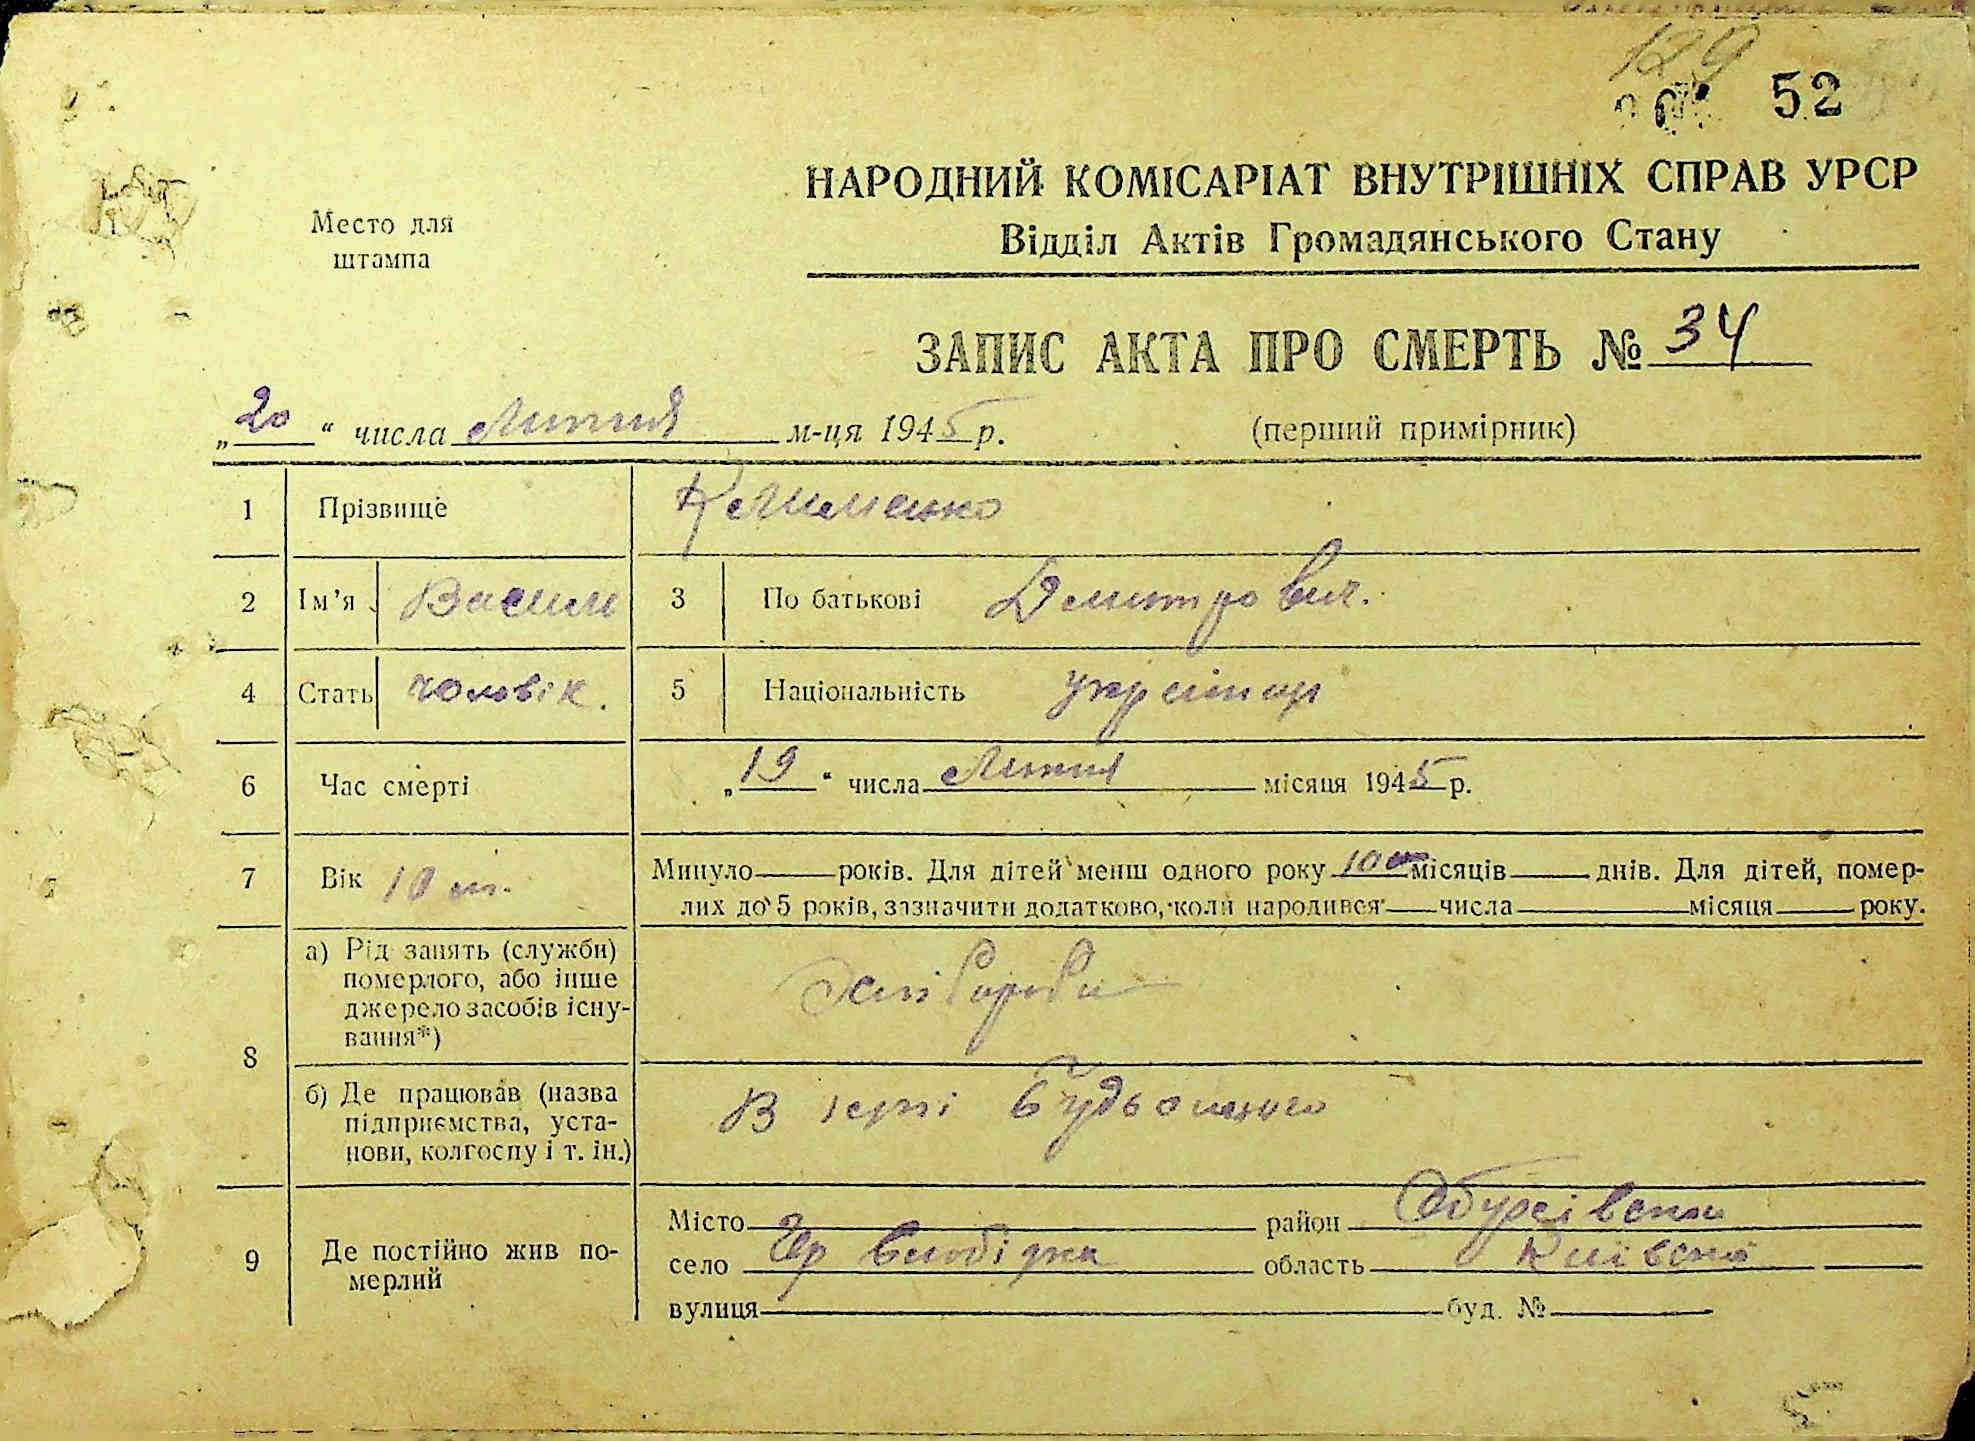 129
52
НАРОДНИЙ КОМІСАРІАТ ВНУТРІШНІХ СПРАВ УРСР
Відділ Актів Громадянського Стану
Место для
штампа
ЗАПИС АКТА ПРО СМЕРТЬ № 34
„20“ числа Липня м-ця 1945 р.
(перший примірник)
1 Прізвище Клименко
2 Ім’я Васили 3 По батькові Дмитрович.
4 Стать чоловік. 5 Національність
6 Час смерті „19“ числа Липня місяця 1945 р.
7 Вік 10 м. Минуло року. Для дітей менш одного року 10 м місяців днів. Для дітей, помер-
лих до 5 років, зазначити додатково, коли народився числа місяця року.
8 а) Рід занять (служби)
померлого, або інше
джерело засобів існу-
вання*)
Хлібороби
б) Де працював (назва
підприємства, уста-
нови, колгоспу і т. ін.)
В Будьонного
9 Де постійно жив по-
мерлий
Місто район Обухівськи
село Чер Слобідка область Київська
вулиця буд. №